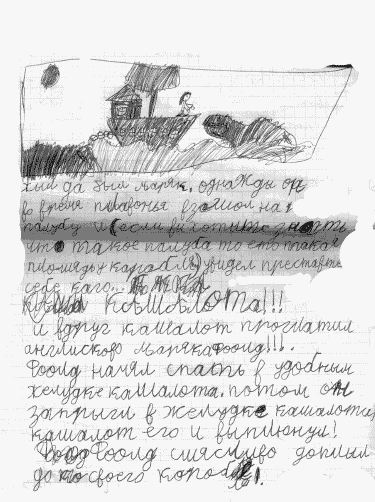 Жыл да был маряк, однажды он
во время плаванья взашол на
палубу и (если вы хотите знать
что такое палуба то ето такая
площядь карабля) увидел преставте
себе каго...
КАШАЛОТА!!!
и вдруг кашалот проглатил
английского маряка Фоолд!!!.
Фоолд начял спать в удобным
желудке кашалота. потом он
запрыгл в желудке кашалота,
кашалот его и выплюнул!
Фоолд счясливо доплыл
до своего